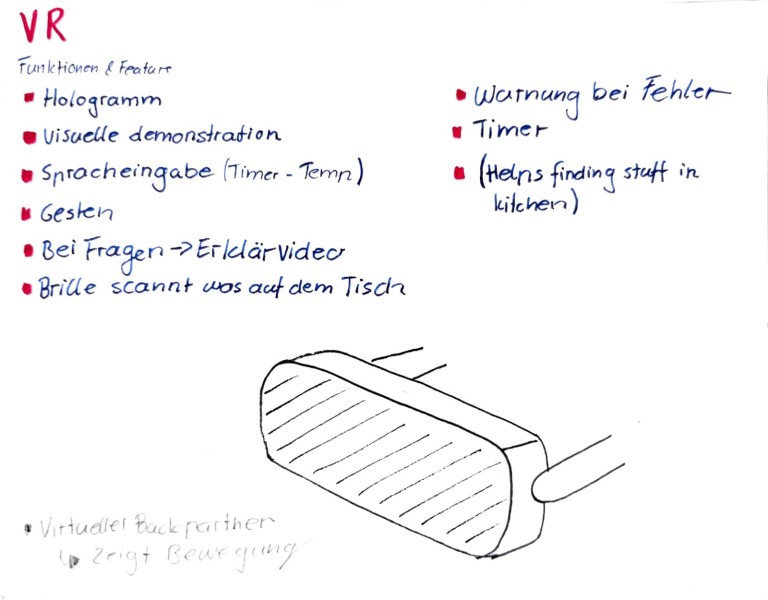 VR
Funktionen & Feature
Hologramm
Visuelle demonstration
Spracheingabe (Timer - Temp)
Gesten
Bei Fragen -> Erklärvideo
Brille scannt was auf dem Tisch
Warnung bei Fehler
Timer
(Helps finding stuff in
kitchen)
Virtueller Backpartner
↳ Zeigt Bewegung